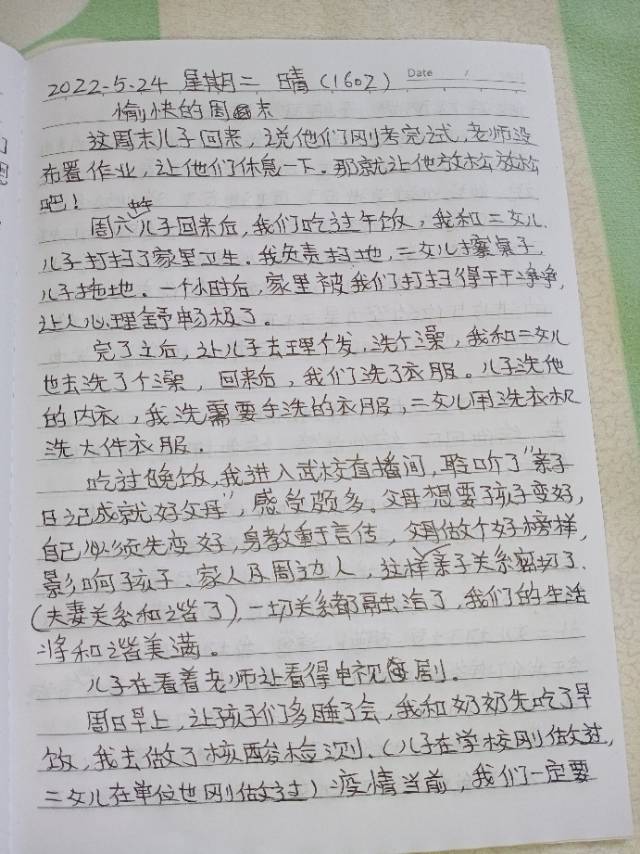 2022-5-24 星期二 晴(1602) Date /
愉快的周末
这周末儿子回来,说他们刚考完试,老师没
布置作业,让他们休息一下。那就让他放松放松
吧!
周六儿子回来后,我们吃过午饭,我和二女儿
儿子打扫了家里卫生。我负责扫地,二女儿擦桌子,
儿子拖地。一个小时后,家里被我们打扫得干干净净,
让人心理舒畅极了。
完了之后,让儿子去理个发,洗个澡,我和二女儿
也去洗了个澡,回来后,我们洗了衣服。儿子洗他
的内衣,我洗需要手洗的衣服,二女儿用洗衣机
洗大件衣服。
吃过晚饭,我进入武校直播间,聆听了"亲子
日记成就好父母",感受颇多。父母想要孩子变好,
自己必须先变好,身教重于言传,父母做个好榜样,
影响孩子、家人及周边人,这样亲子关系密切了.
(夫妻关系和谐了),一切关系都融洽了,我们的生活
将和谐美满。
儿子在看着老师让看得电视剧。
周日早上,让孩子们多睡了会,我和奶奶先吃了早
饭,我去做了核酸检测.(儿子在学校刚做过,
二女儿在单位也刚做过)疫情当前,我们一定要